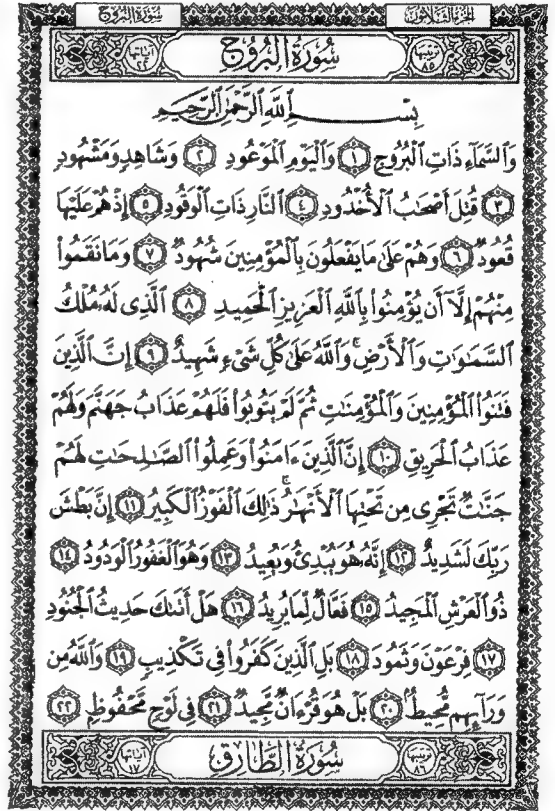 سُورَةُ البُرُوجِ الجُزْءُ الثَّلَاثُونَ
تَرتِيبُهَا ٨٥ سُورَةُ البُرُوجِ آيَاتُهَا ٢٢
بِسْمِ اللَّهِ الرَّحْمَٰنِ الرَّحِيمِ
وَالسَّمَآءِ ذَاتِ الْبُرُوجِ ١ وَالْيَوْمِ الْمَوْعُودِ ٢ وَشَاهِدٍ وَمَشْهُودٍ
٣ قُتِلَ أَصْحَٰبُ الْأُخْدُودِ ٤ النَّارِ ذَاتِ الْوَقُودِ ٥ إِذْ هُمْ عَلَيْهَا
قُعُودٌ ٦ وَهُمْ عَلَىٰ مَا يَفْعَلُونَ بِالْمُؤْمِنِينَ شُهُودٌ ٧ وَمَا نَقَمُوا۟
مِنْهُمْ إِلَّآ أَن يُؤْمِنُوا۟ بِاللَّهِ الْعَزِيزِ الْحَمِيدِ ٨ الَّذِى لَهُۥ مُلْكُ
السَّمَٰوَٰتِ وَالْأَرْضِ ۚ وَاللَّهُ عَلَىٰ كُلِّ شَىْءٍ شَهِيدٌ ٩ إِنَّ الَّذِينَ
فَتَنُوا۟ الْمُؤْمِنِينَ وَالْمُؤْمِنَٰتِ ثُمَّ لَمْ يَتُوبُوا۟ فَلَهُمْ عَذَابُ جَهَنَّمَ وَلَهُمْ
عَذَابُ الْحَرِيقِ ١٠ إِنَّ الَّذِينَ ءَامَنُوا۟ وَعَمِلُوا۟ الصَّٰلِحَٰتِ لَهُمْ
جَنَّٰتٌ تَجْرِى مِن تَحْتِهَا الْأَنْهَٰرُ ۚ ذَٰلِكَ الْفَوْزُ الْكَبِيرُ ١١ إِنَّ بَطْشَ
رَبِّكَ لَشَدِيدٌ ١٢ إِنَّهُۥ هُوَ يُبْدِئُ وَيُعِيدُ ١٣ وَهُوَ الْغَفُورُ الْوَدُودُ ١٤
ذُو الْعَرْشِ الْمَجِيدُ ١٥ فَعَّالٌ لِّمَا يُرِيدُ ١٦ هَلْ أَتَىٰكَ حَدِيثُ الْجُنُودِ
١٧ فِرْعَوْنَ وَثَمُودَ ١٨ بَلِ الَّذِينَ كَفَرُوا۟ فِى تَكْذِيبٍ ١٩ وَاللَّهُ مِن
وَرَآئِهِم مُّحِيطٌۢ ٢٠ بَلْ هُوَ قُرْءَانٌ مَّجِيدٌ ٢١ فِى لَوْحٍ مَّحْفُوظٍۭ ٢٢
تَرتِيبُهَا ٨٦ سُورَةُ الطَّارِقِ آيَاتُهَا ١٧